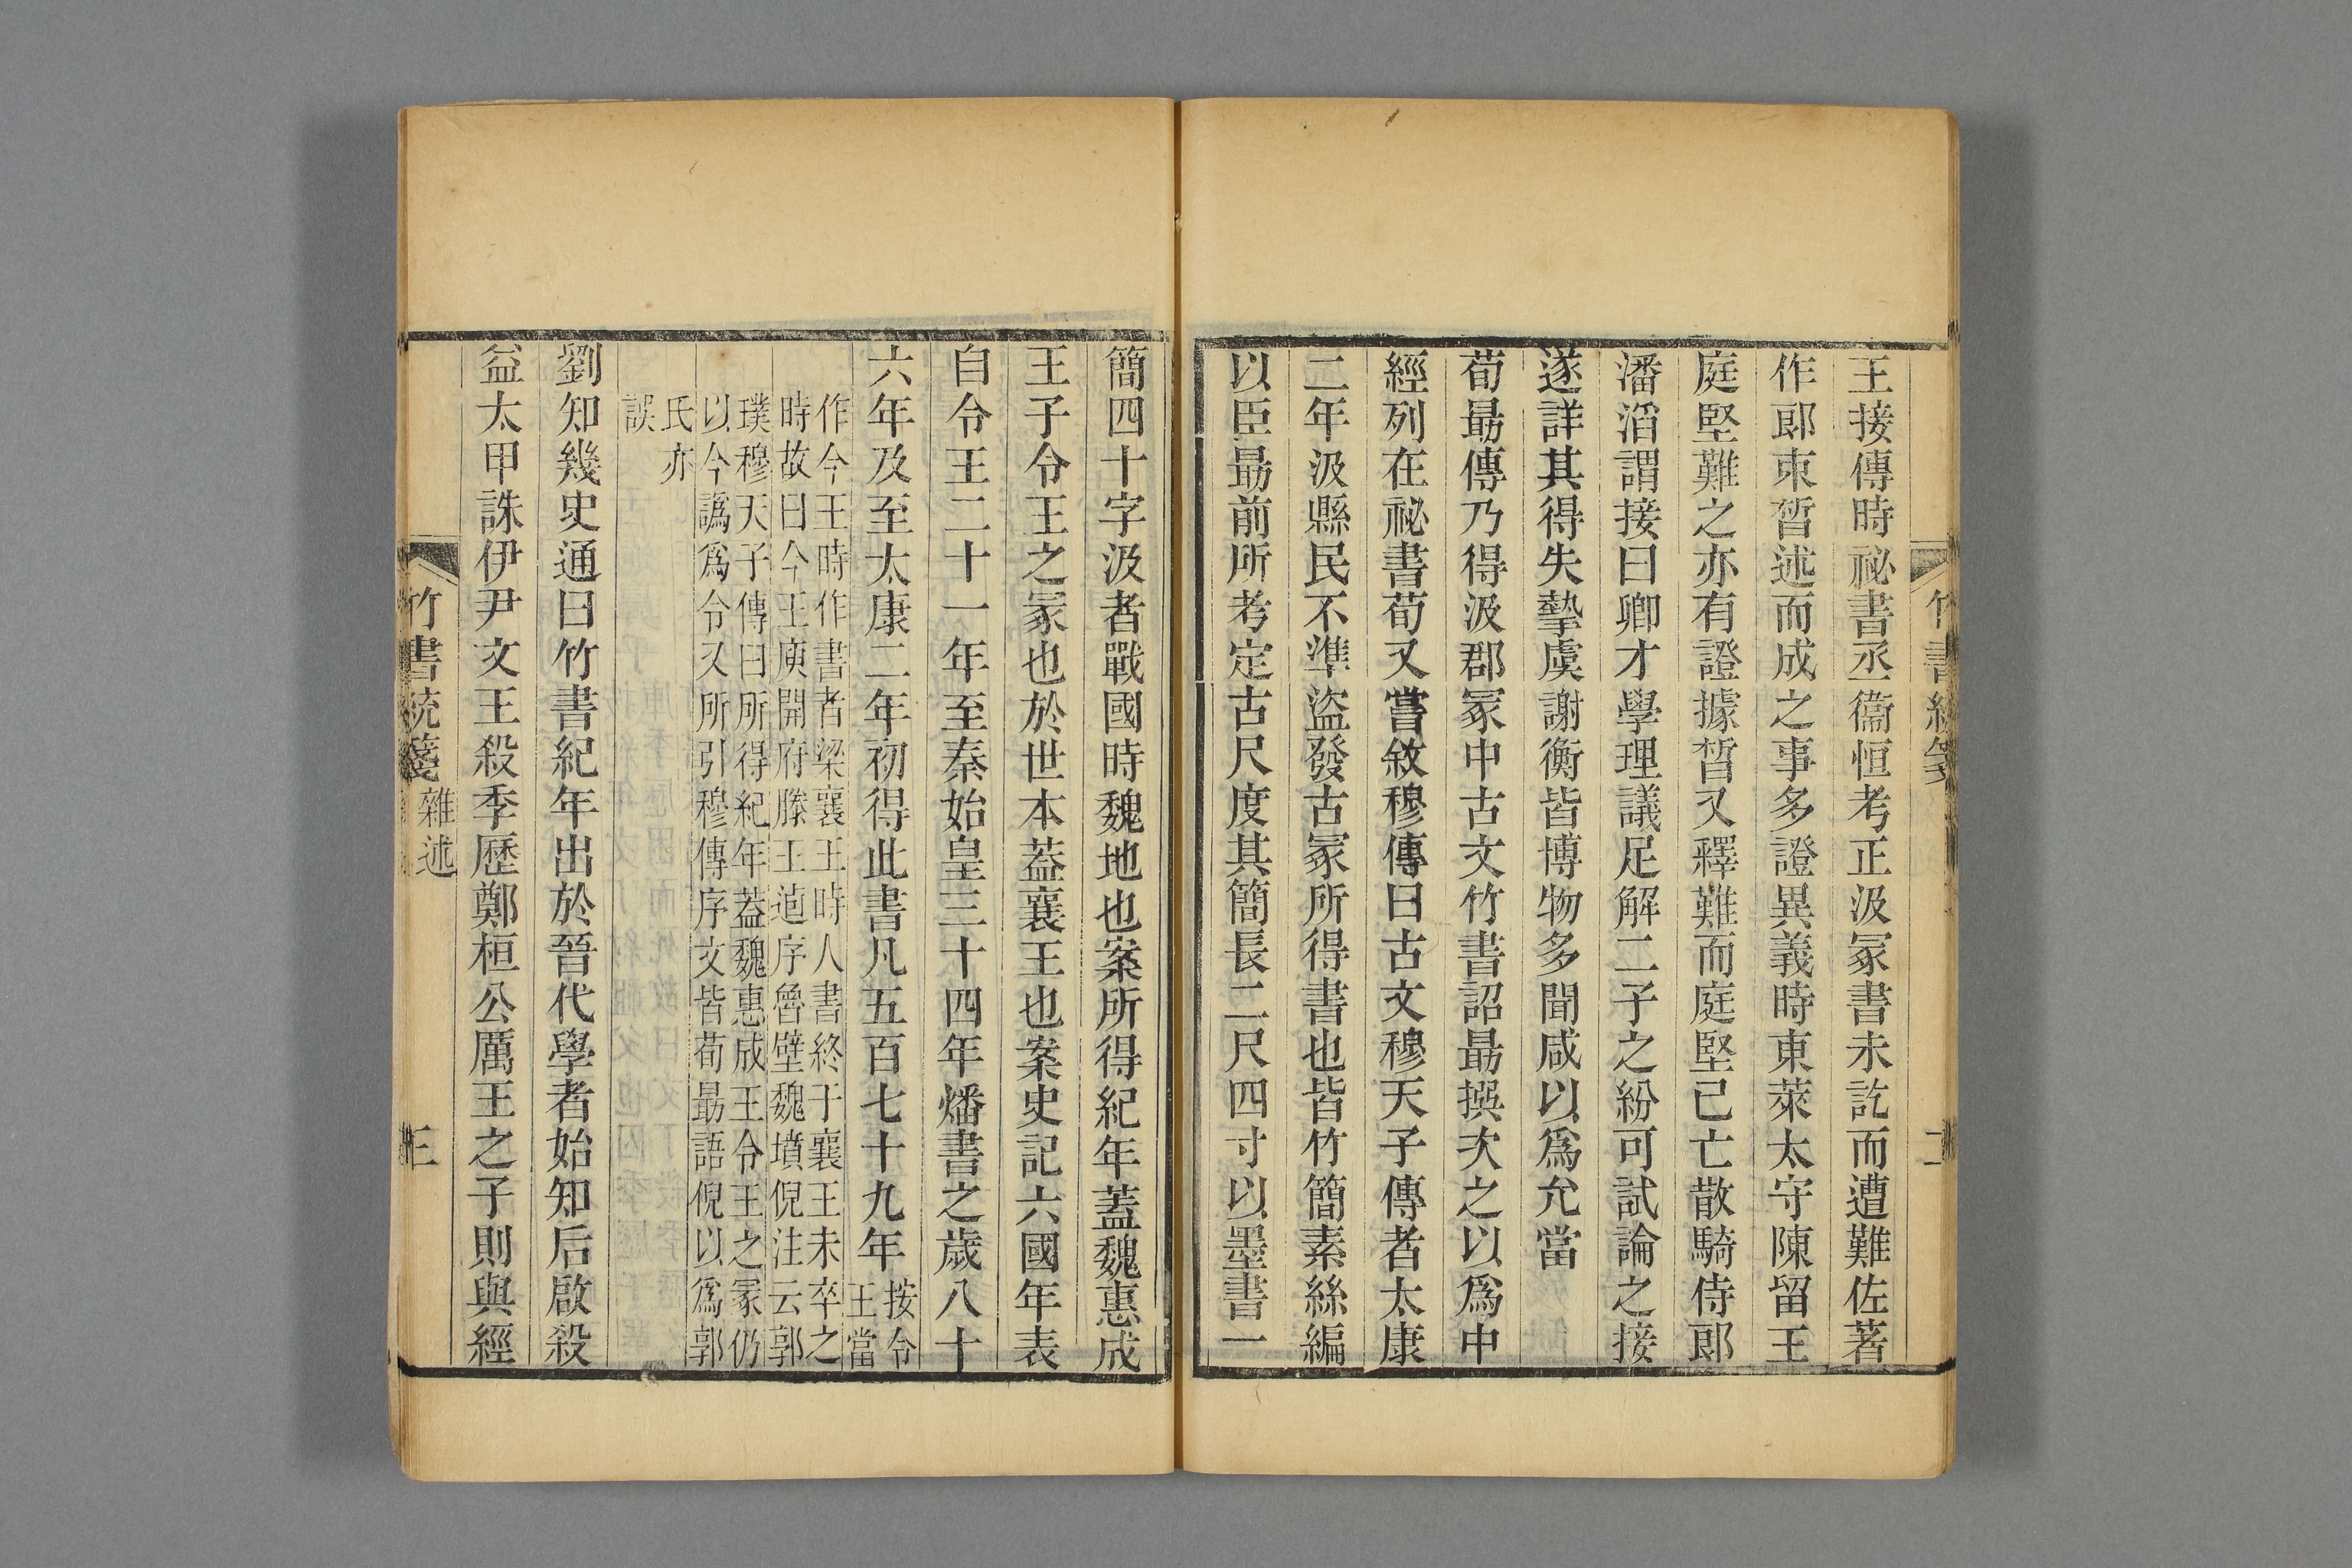 竹書統箋
二
王接傳時祕書丞衞恒考正汲冢書未訖而遭難佐著
作郎束晳述而成之事多證異義時東萊太守陳留王
庭堅難之亦有證據晳又釋難而庭堅已亡散騎侍郎
潘滔謂接曰卿才學理議足解二子之紛可試論之接
遂詳其得失摯虞謝衡皆博物多聞咸以爲允當
荀勗傳乃得汲郡冢中古文竹書詔勗撰次之以爲中
經列在祕書荀又嘗敘穆傳曰古文穆天子傳者太康
二年汲縣民不準盜發古冢所得書也皆竹簡素絲編
以臣勗前所考定古尺度其簡長二尺四寸以墨書一
簡四十字汲者戰國時魏地也案所得紀年蓋魏惠成
王子令王之冢也於世本蓋襄王也案史記六國年表
自令王二十一年至秦始皇三十四年燔書之歲八十
六年及至太康二年初得此書凡五百七十九年
按令
王當
作今王時作書者梁襄王時人書終于襄王未卒之
時故曰今王庾開府滕王逌序魯壁魏墳倪注云郭
璞穆天子傳曰所得紀年蓋魏惠成王令王之冢仍
以今譌爲令又所引穆傳序文皆荀勗語倪以爲郭
氏亦
誤
劉知幾史通曰竹書紀年出於晉代學者始知后啟殺
益太甲誅伊尹文王殺季歷鄭桓公厲王之子則與經
竹書統箋
雜述
三